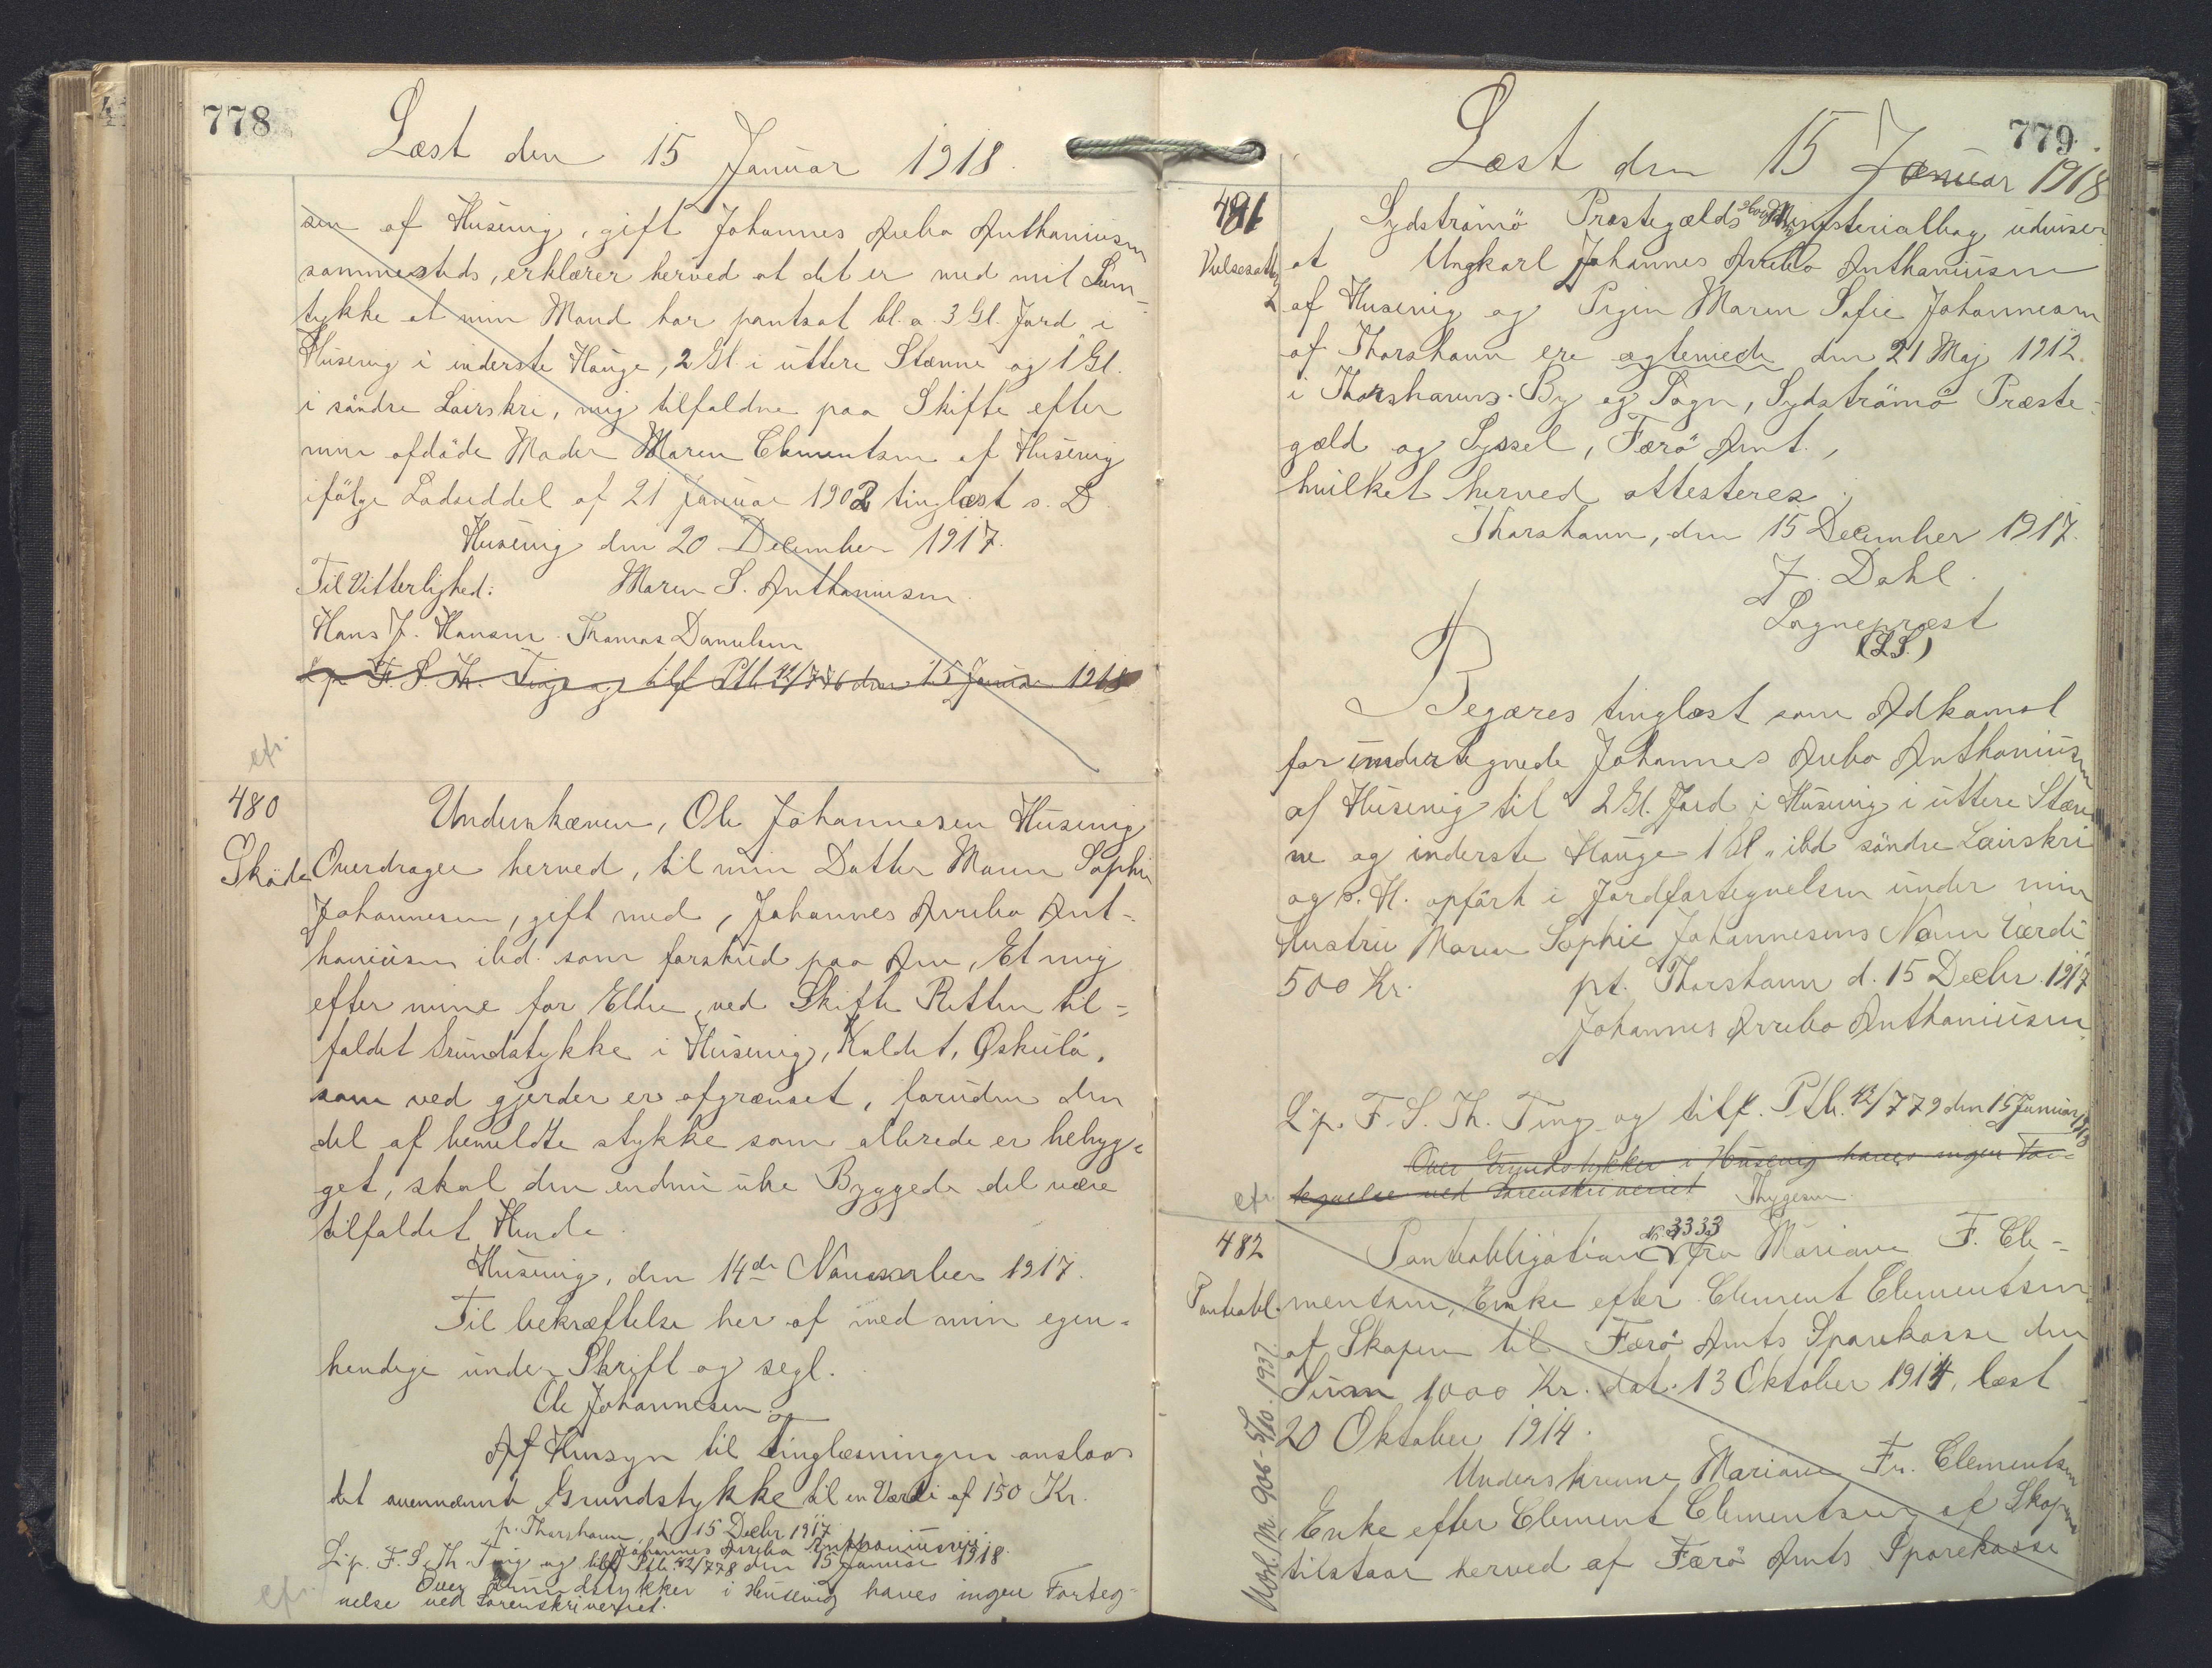 778
Læst den 15 Januar 1918.
sen af Husevig, gift Johannes Arrebo Anthaniusen
sammesteds, erklærer herved at det er med mit Sam-
tykke at min Mand har pantsat bl. a. 3 Gl. Jord i
Husevig i inderste Hauge, 2 Gl. i uttere Stænne og 1 Gl.
i söndre Lairskri, mig tilfaldne paa Skifte efter
min afdöde Moder Maren Clementsen af Husevig
ifölge Lodseddel af 21 Januar 1902 tinglæst s. D.
Husevig den 20 December 1917.
Til Vitterlighed: Maren S. Anthaniusen
Hans J. Hansen. Thomas Danielsen
L. p. F. S. Th. Ting og tilf Ptb 42/776 den 15 Januar 1918
efr.
480
Skøde
Underskæven, Ole Johannesen Husevig
Overdrager herved, til min Datter Maren Sophie
Johannesen, gift med, Johannes Arrebo Ant-
haniusen ibd. som forskud paa Arv, Et mig
efter mine for Eldre, ved Skifte Retten til-
faldet Grundstykke i Husevig, Kaldet, Öskulá,
som ved gjerder er afgrænset, foruden den
del af bemeldte stykke som allerede er bebyg-
get, skal den endnu ube Byggede del være
tilfaldet Hende.
Husevig, den 14de November 1917.
Til bekræftelse her af med min egen-
hendige under Skrift og segl.
Ole Johannesen.
Af Hensyn til Tinglæsningen anslaas
det ovennævnte Grundstykke til en Værdi af 150 Kr.
p. Thorshavn, d. 15 Decbr 1917
Johannes Arrebo Anthaniusen
L. p. F. S. Th. Ting og tilf Ptb. 42/778 den 15 Januar 1918.
Over Grundstykker i Husevig haves ingen Forteg-
nelse ved Sorenskriveriet.
efr.
779.
Læst den 15 Januar 1918
481
Vielsesatt.
Sydströmö Præstegælds Ministerialbog udviser
at Ungkarl Johannes Arrebo Anthaniusen
af Husevig og Pigen Maren Sofie Johannesen
af Thorshavn ere ægteviede den 21 Maj 1912.
i Thorshavns By og Sogn, Sydströmö Præste-
gæld og Syssel, Færö Amt.,
hvilket herved attesteres.
Thorshavn, den 15 December 1917.
J. Dahl.
Sognepræst
(L.S.)
Begæres tinglæst som Adkomst
for undertegnede Johannes Arrebo Anthaniusen
af Husevig til 2 Gl. Jord i Husevig i uttere Stæn-
ne og inderste Hauge 1 Gl. ibd söndre Lairskri
og s. H. opfört i Jordfortegnelsen under min
Hustru Maren Sophie Johannesens Navn Værdi
500 Kr. pt. Thorshavn d. 15 Decbr. 1917
Johannes Arrebo Anthaniusen
L. p. F. S. Th. Ting og tilf. Ptb. 42/779 den 15 Januar 1918
Over Grundstykker i Husevig haves ingen For-
tegnelse ved Sorenskriveriet Thygesen
efr.
482
Panteobl.
Panteobligation Nr. 3333 fra Mariane F. Cle-
mentsen, Enke efter Clement Clementsen
af Skopen til Færö Amts Sparekasse den
Sum 1000 Kr. dat. 13 Oktober 1914, læst
20 Oktober 1914.
Underskrevne Mariane Fr. Clementsen
Enke efter Clement Clementsen af Skopen
tilstaar herved af Færö Amts Sparekasse
Mort. Nr. 906 - 5/10. 1937.